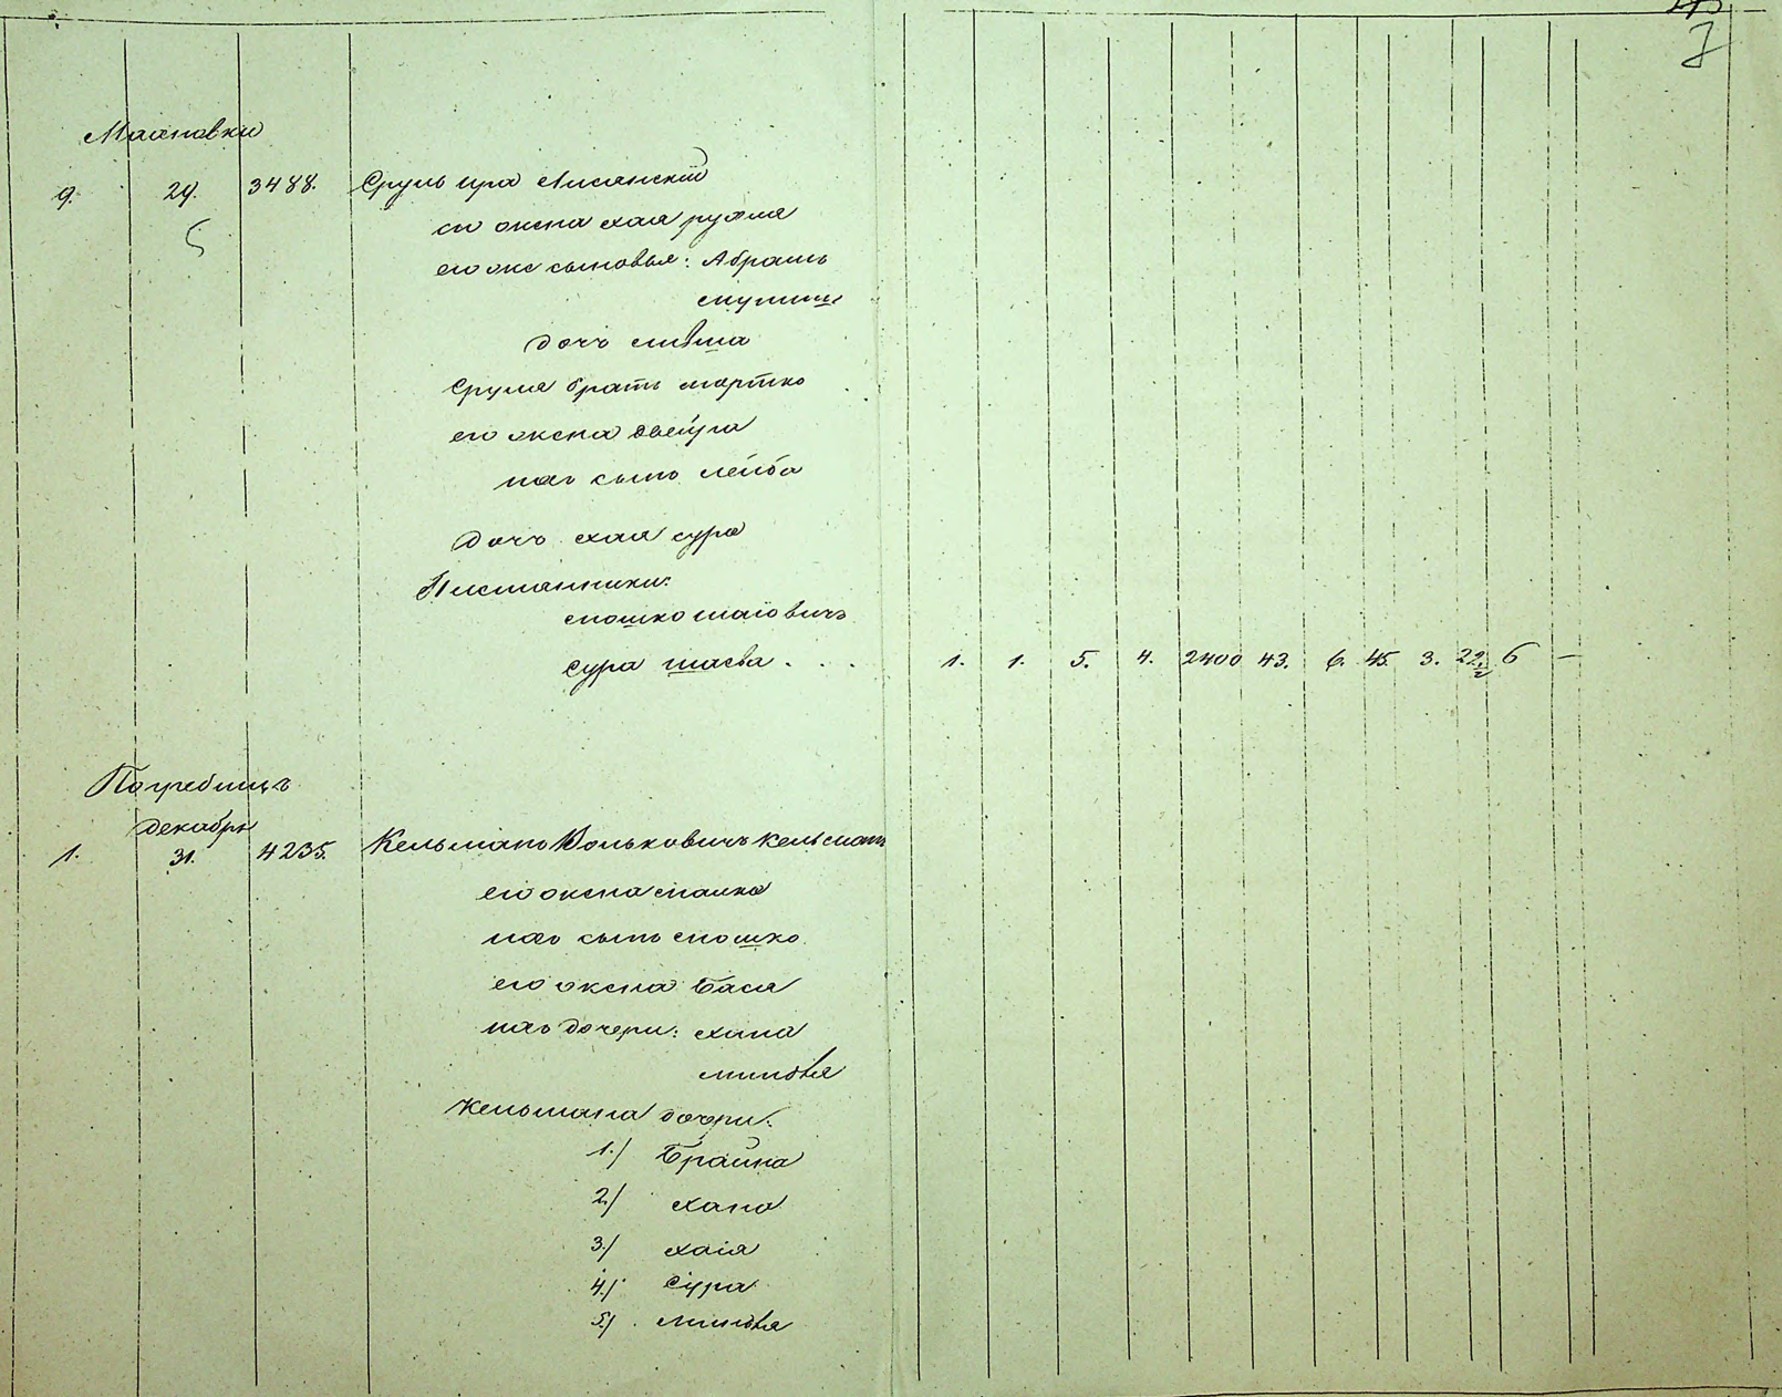 7
9. 29. 3488. Сруль Ицко Лисянскій
его жена Хая рухля
его же сыновья: Абрамъ
дочь
Сруля братъ мортко
его жена двейра
ихъ сынъ лейба
дочь хая сура
мошко шаіовичъ
сура шаева . . . 1. 1. 5. 4. 2400 43. 6. 45. 3. 22 6 —
Погребищъ
декабря
1. 31. 4235. Кельманъ Вольковичъ Кельман
его жена малка
ихъ сынъ мошко
его жена Бася
ихъ дочери: хана
Кельмана дочери:
1.) Брайна
2.) хана
3.) хаія
4.) Сура
5.)